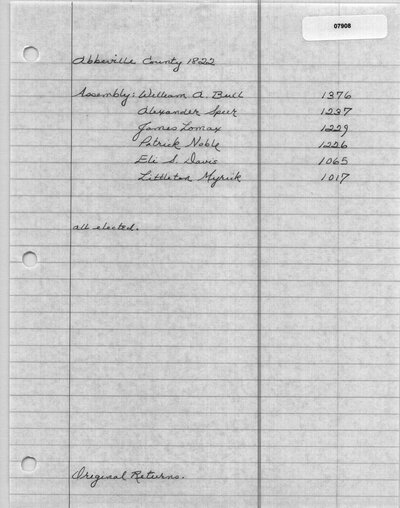 07908
Abbeville County 1822
Assembly: William A. Bull 1376
Alexander Speer 1237
James Lomax 1229
Patrick Noble 1226
Eli S. Davis 1065
Littleton Myrick 1017
all elected.
Original Returns.